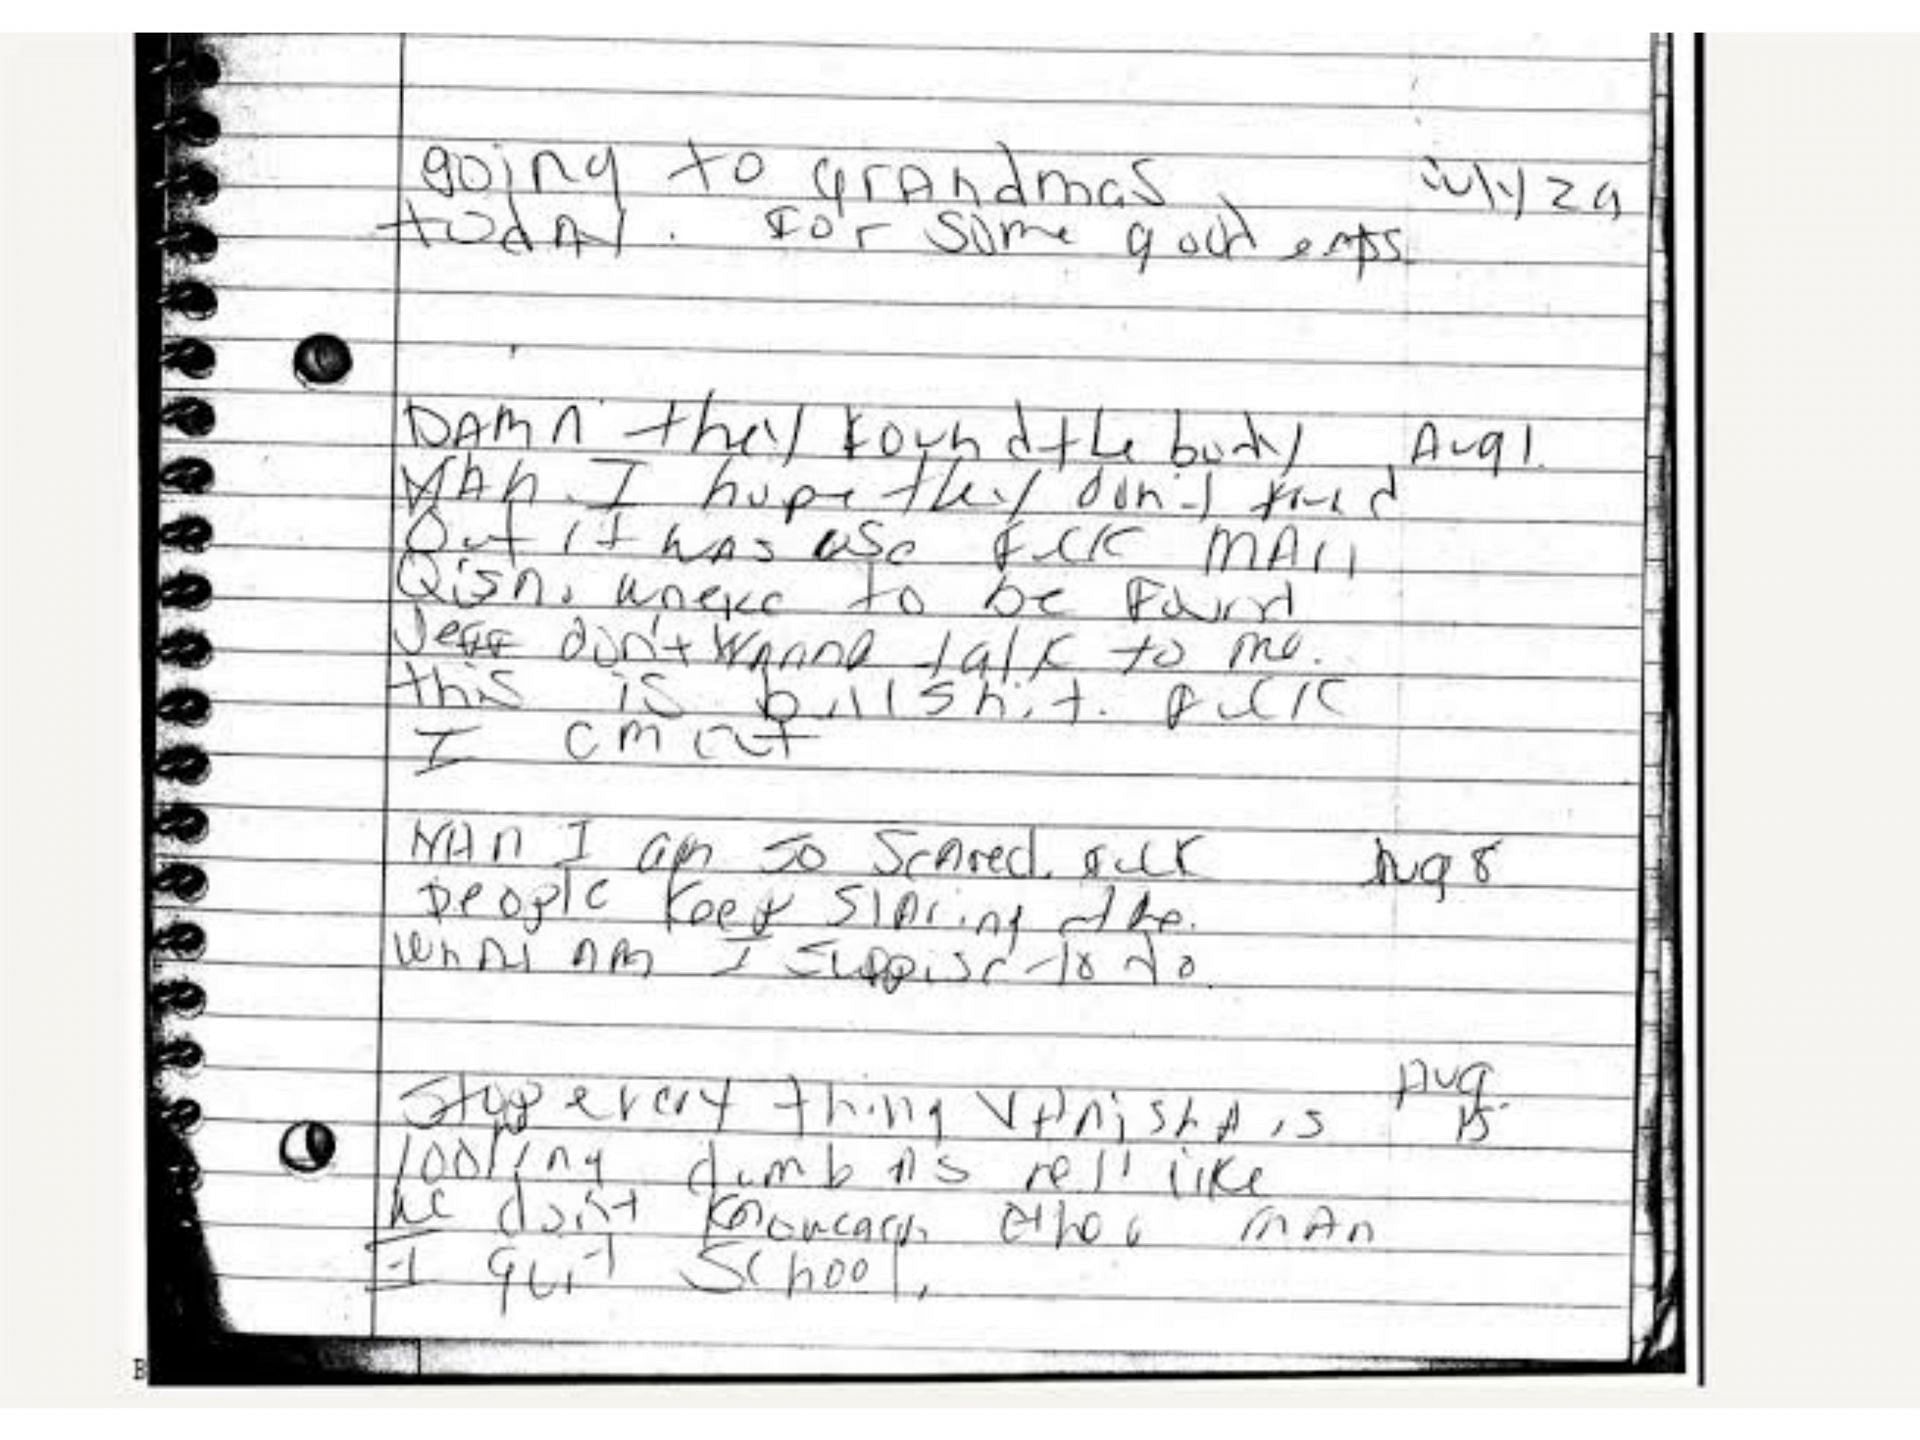 going to grandmas July 29
today. For some good
DAMN they found the body Aug 1.
MAN I hope they don't find
Out it was use Fuck MAN
to be Found
Jeff don't wanna talk to me.
this is bullshit. Fuck
I out
MAN I am so scared. Fuck Aug 8
people keep staring
What AM I suppise to do.
Stop every thing VANisha is Aug
15
looking dumb As hell like
we don't know each other MAN
I quit School,
B